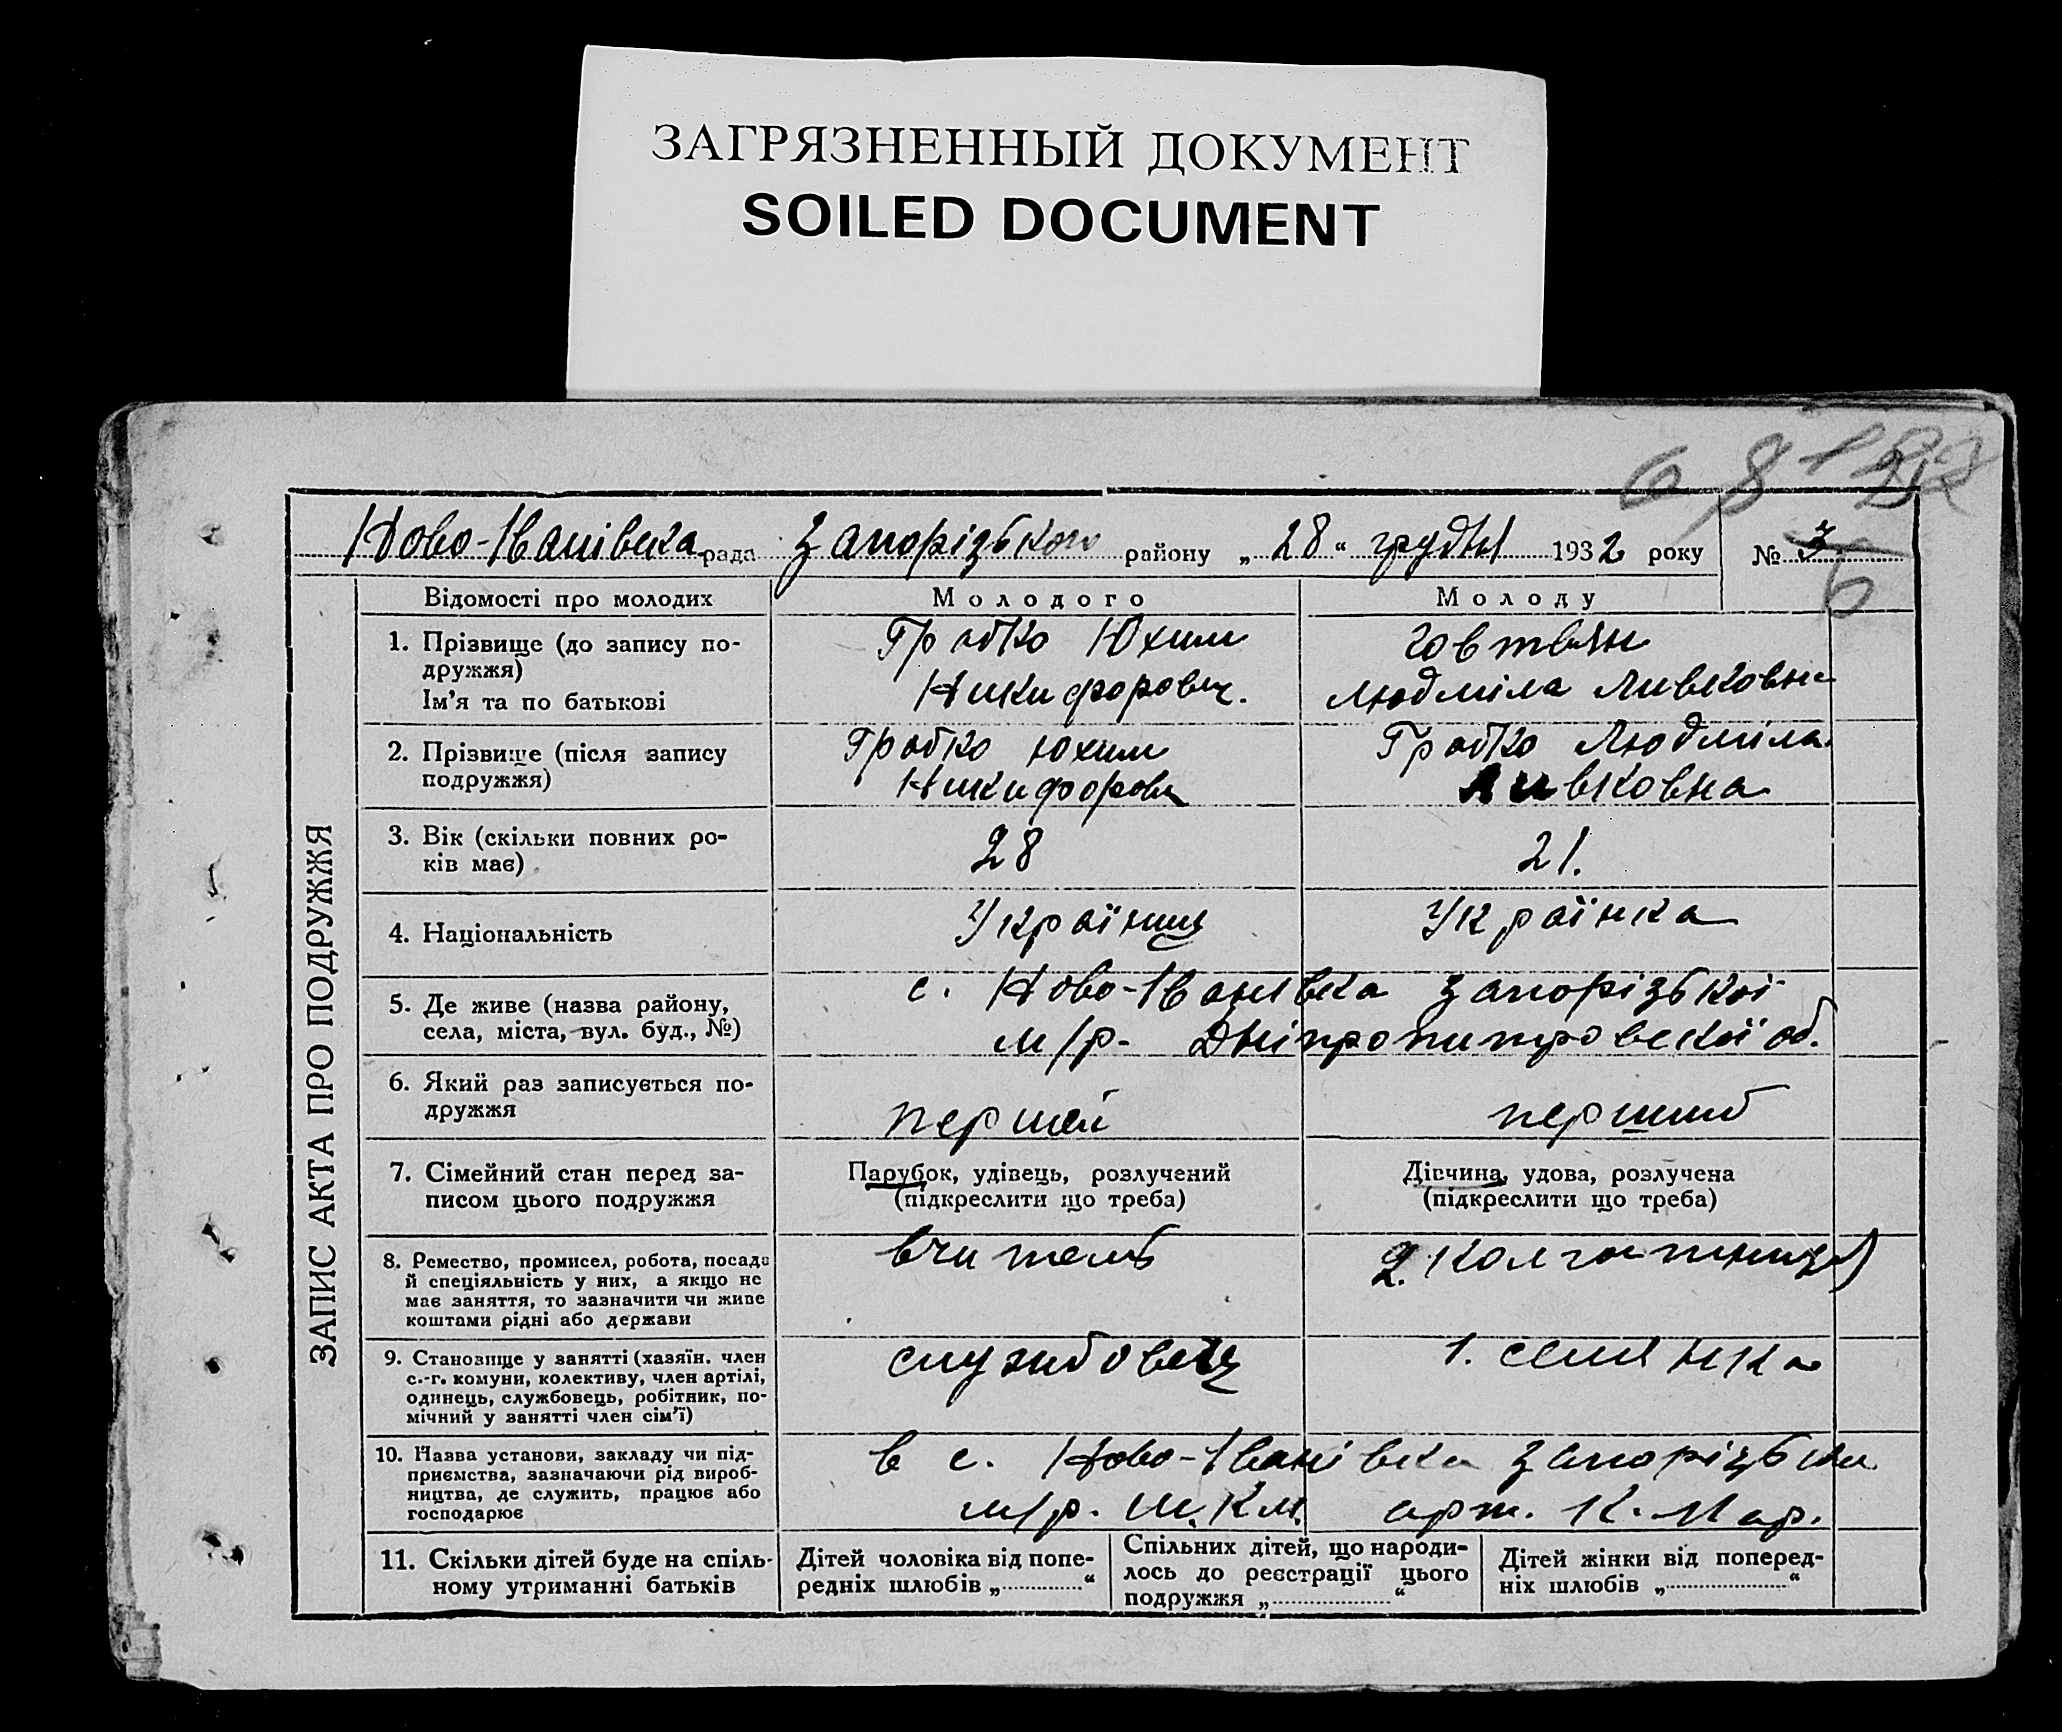 ЗАГРЯЗНЕННЫЙ ДОКУМЕНТ
SOILED DOCUMENT
Ново-Іванівська рада Запорізького району „28“ грудня 1932 року № 3
6
ЗАПИС АКТА ПРО ПОДРУЖЖЯ
Відомості про молодих
Молодого
Молоду
1. Прізвище (до запису по-
дружжя)
Ім’я та по батькові
Грабко Юхим
Никифорович.
Говтвян
Людміла Лівковна
2. Прізвище (після запису
подружжя)
Грабко Юхим
Никифорович
Грабко Людміла
Лівковна
3. Вік (скільки повних ро-
ків має)
28
21.
4. Національність
Українець
Українка
5. Де живе (назва району,
села, міста, вул. буд., №)
с. Ново-Іванівка Запорізької
м/р. Дніпропитровської об.
6. Який раз записується по-
дружжя
першей
перший
7. Сімейний стан перед за-
писом цього подружжя
Парубок, удівець, розлучений
(підкреслити що треба)
Дівчина, удова, розлучена
(підкреслити що треба)
8. Ремество, промисел, робота, посада
й спеціяльність у них, а якщо не
має заняття, то зазначити чи живе
коштами рідні або держави
вчитель
2. колгоспниця
9. Становище у занятті (хазяїн. член
с.-г. комуни, колективу, член артілі,
одинець, службовець, робітник, по-
мічний у занятті член сім’ї)
службовець
1. селянка
10. Назва установи, закладу чи під-
приємства, зазначаючи рід вироб-
ництва, де служить, працює або
господарює
в с. Ново-Іванівка Запорізьки
м/р. Ш.К.М. арт. К. Мар.
11. Скільки дітей буде на спіль-
ному утриманні батьків
Дітей чоловіка від попе-
редніх шлюбів „ “
Спільних дітей, що народи-
лось до реєстрації цього
подружжя „ “
Дітей жінки від поперед-
ніх шлюбів „ “